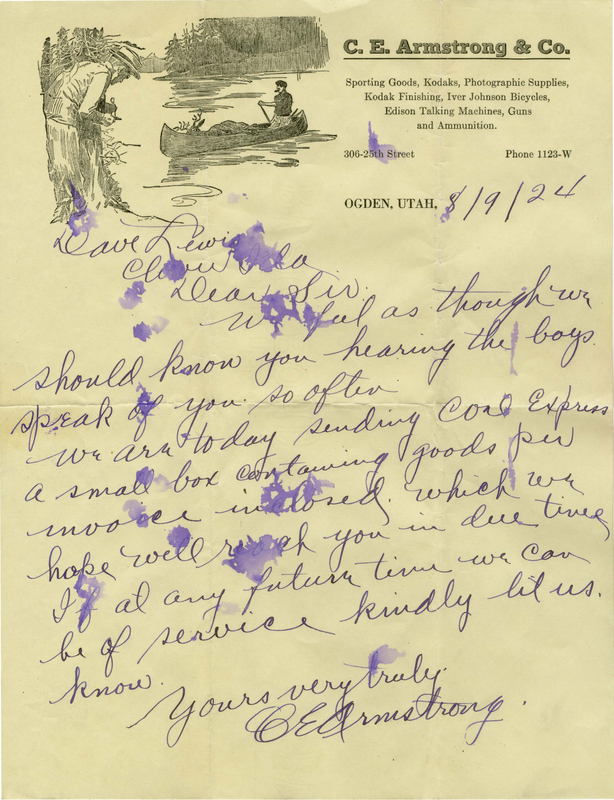 C. E. Armstrong & Co.
Sporting Goods, Kodaks, Photographic Supplies,
Kodak Finishing, Iver Johnson Bicycles,
Edison Talking Machines, Guns
and Ammunition.
306-25th Street Phone 1123-W
OGDEN, UTAH, 8/9/24
Dave Lewis
Dear Sir.
We feel as though we
should know you hearing the boys
speak of you so often
We are today sending Coal Express
a small box containing goods per
invoice inclosed. which we
hope will reach you in due time
If at any future time we can
be of service kindly let us.
know.
Yours very truly.
C E Armstrong.